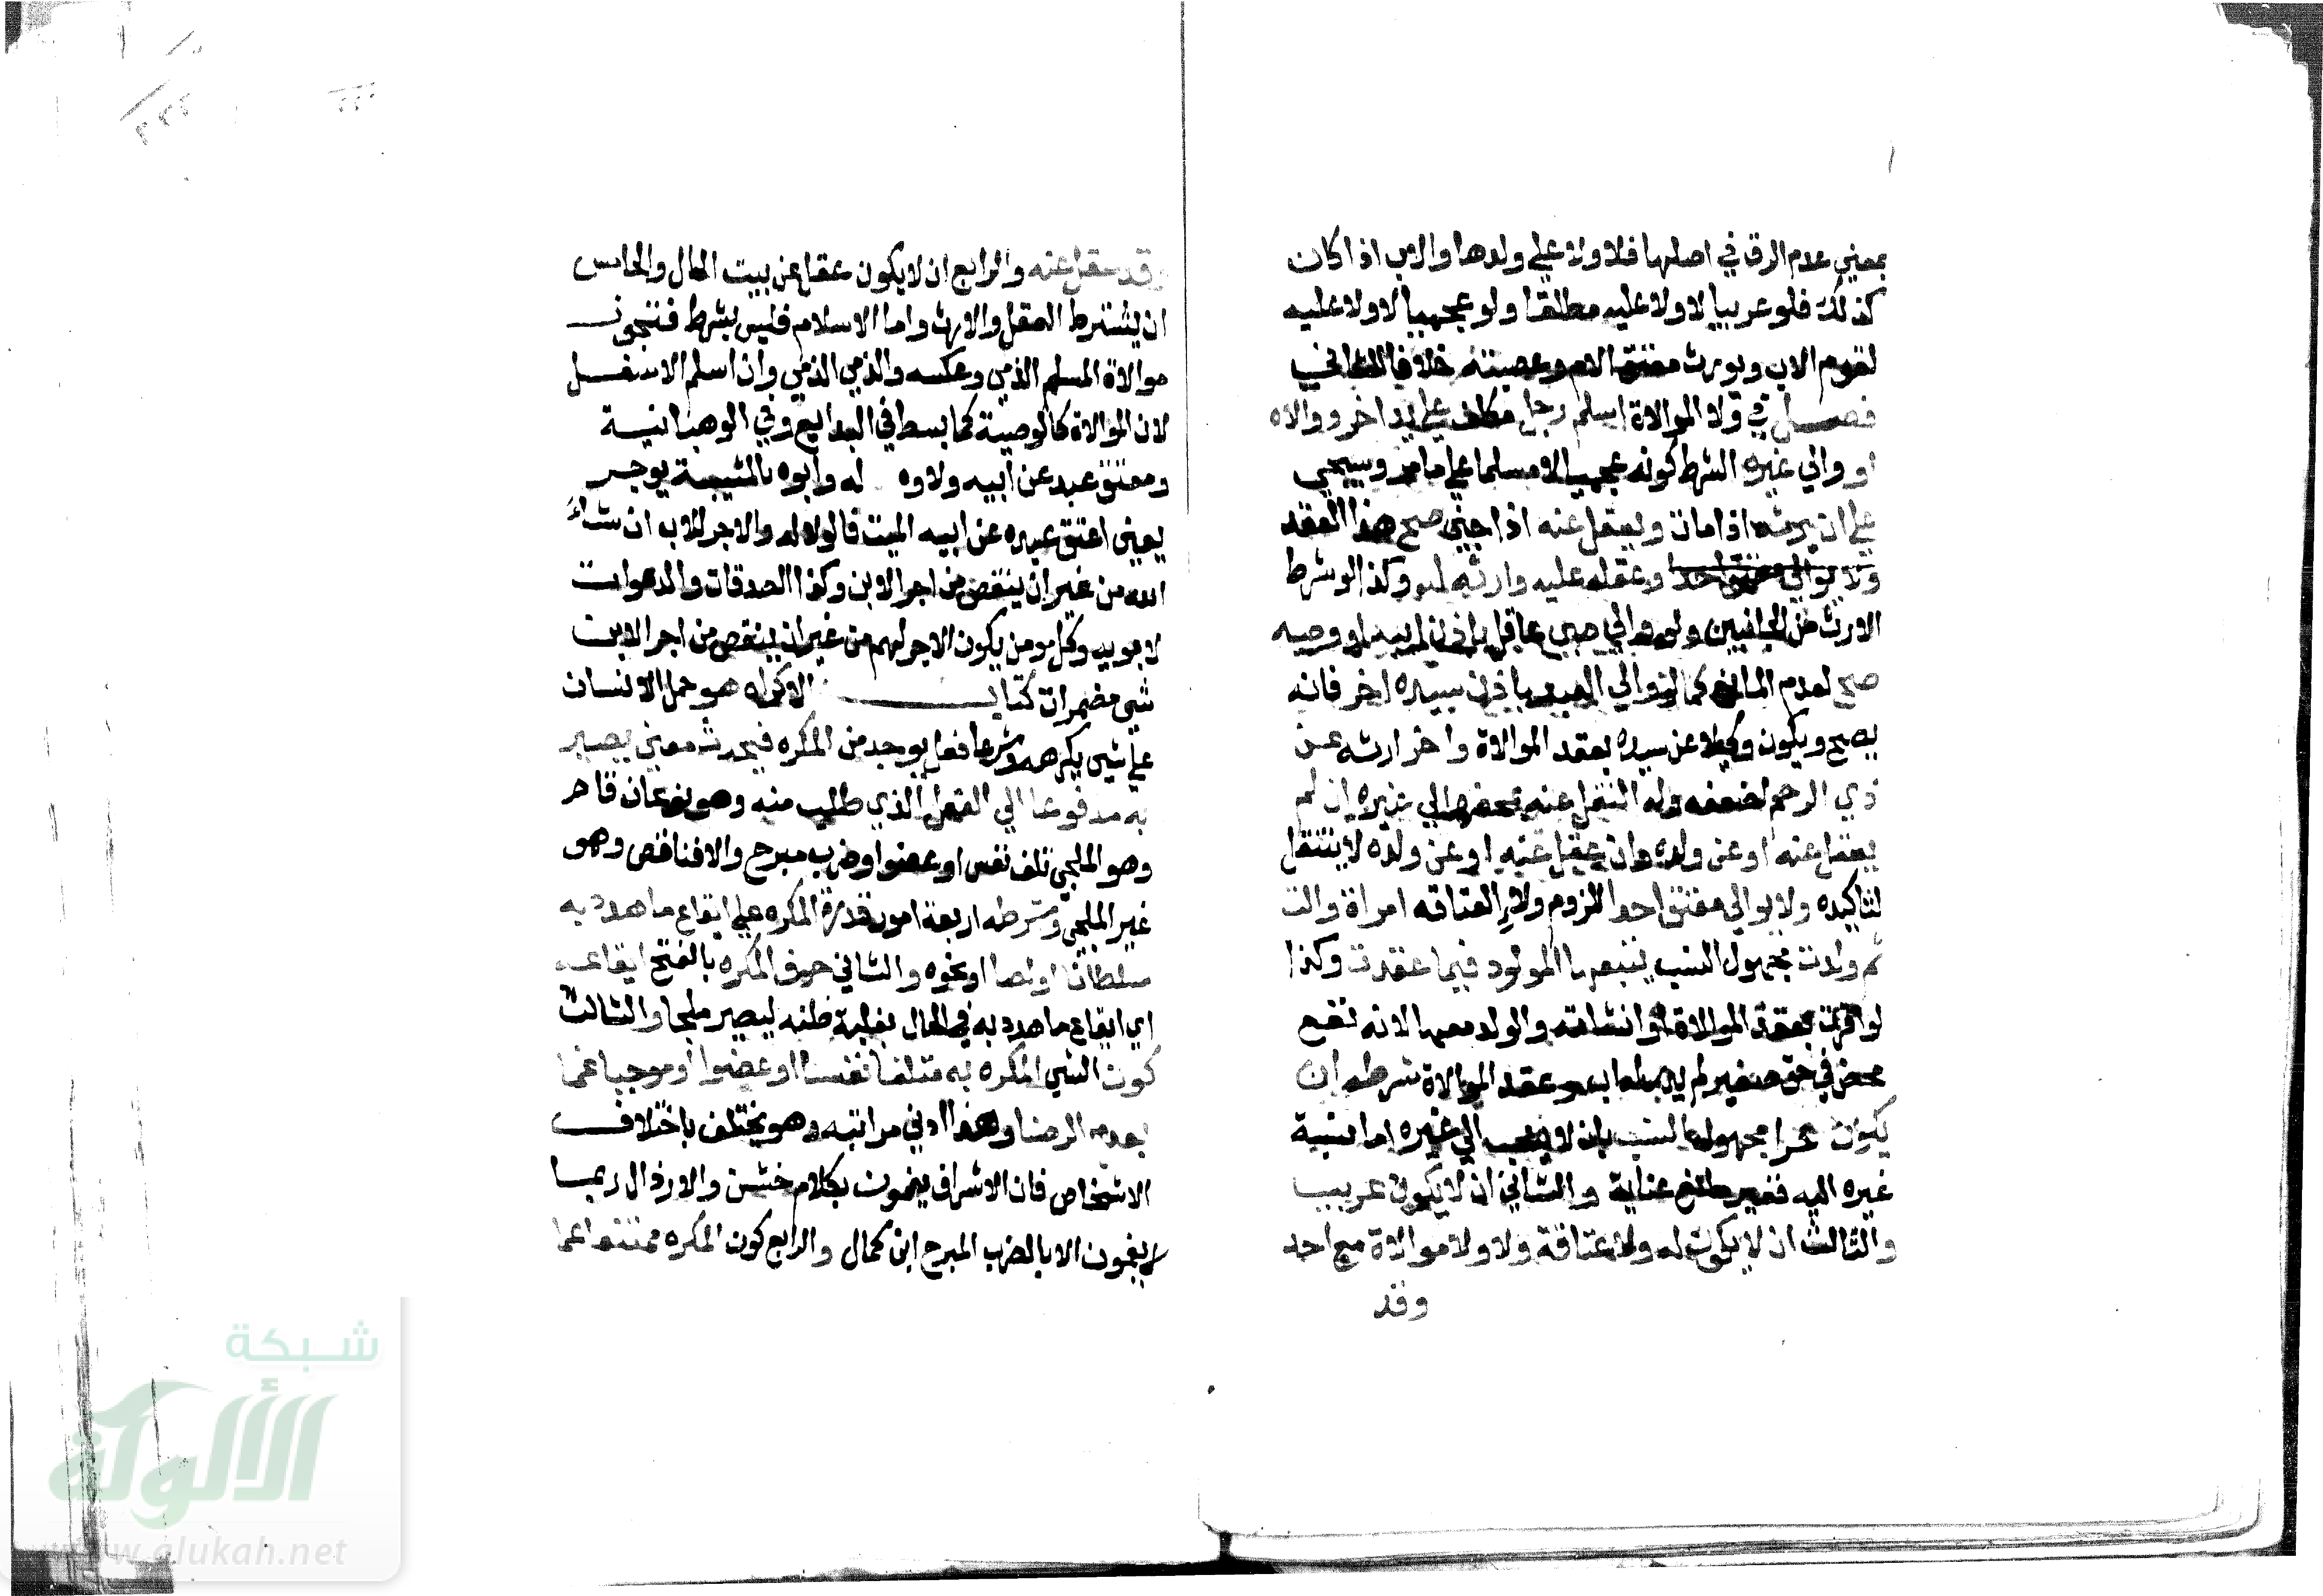 بمعني عدم الرق في اصلها فلا ولاء علي ولدها والاب اذا كان
كذلك فلو عربيا لا ولاء عليه مطلقا ولو عجميا لا ولاء عليه
لقوم الاب ويورث معتق الام وعصبته خلافا للثاني
فصل في ولاء الموالاة اسلم رجل مكلف علي يد اخر ووالاه
او والي غيره الشرط كونه عجميا لا مسلما علي ما مر وسيجي
علي ان يرثه اذا مات ويعقل عنه اذا جني صح هذا العقد
وعقله عليه وارثه له وكذا لو شرط
الارث من الجانبين ولو والي صبي عاقل باذن ابيه او وصيه
صح لعدم المانع كما لو والي العبد باذن سيده اخر فانه
يصح ويكون وكيلا عن سيده بعقد الموالاة واخر ارثه عن
ذي الرحم لضعفه وله النقل عنه بمحضره الي غيره ان لم
يعقل عنه او عن ولده وان عقل عنه او عن ولده لا ينتقل
لتاكيده ولا يوالي معتق احدا للزوم ولاء العتاقه امراة والت
ثم ولدت مجهول النسب يتبعها المولود فيما عقدت وكذا
لو اقرت بعقد الموالاة او انشاته والولد معها لانه نفع
محض في حق صغير لم يدر له اب وعقد الموالاة شرطه ان
يكون حرا مجهول النسب بان لا ينسب الي غيره اما نسبة
غيره اليه فغير مانع عناية والثاني ان لا يكون عربيا
والثالث ان لا يكون له ولاء عتاقة ولا ولاء موالاة مع احد
وقد
وقد عقل عنه والرابع ان لا يكون عقل عن بيت المال والخامس
ان يشترط العقل والارث واما الاسلام فليس بشرط فتجوز
موالاة المسلم الذمي وعكسه والذمي الذمي وان اسلم الاسفل
لان الموالاة كالوصية كما بسط في البدايع وفي الوهبانية
ومعتق عبد عن ابيه ولاوه له وابوه بالمشيئة يوجر
يعني اعتق عبده عن ابيه الميت فالولاء له والاجر للاب ان شاء
الله من غير ان ينقص من اجر الابن وكذا الصدقات والدعوات
لابويه وكل مومن يكون الاجر لهم من غير ان ينقص من اجر الابن
شي مضمرات كتاب الاكراه هو حمل الانسان
علي شي يكرهه وشرعا فعل يوجد من المكره فيحدث معني يصير
به مدفوعا الي الفعل الذي طلب منه وهو نوعان تام
وهو الملجي بتلف نفس او عضو او ضرب مبرح والا فناقص وهو
غير الملجي وشرطه اربعة امور قدرة المكره علي ايقاع ما هدد به
سلطانا او لصا او نحوه والثاني خوف المكره بالفتح ايقاعه
اي ايقاع ما هدد به في الحال بغلبة ظنه ليصير ملجا والثالث
كون الشي المكره به متلفا نفسا او عضوا او موجبا غما
يعدم الرضا وهذا ادني مراتبه وهو يختلف باختلاف
الاشخاص فان الاشراف يغمون بكلام خشن والارذال ربما
لا يغمون الا بالضرب المبرح ابن كمال والرابع كون المكره ممتنعا عما
شبكة
الألوكة
www.alukah.net